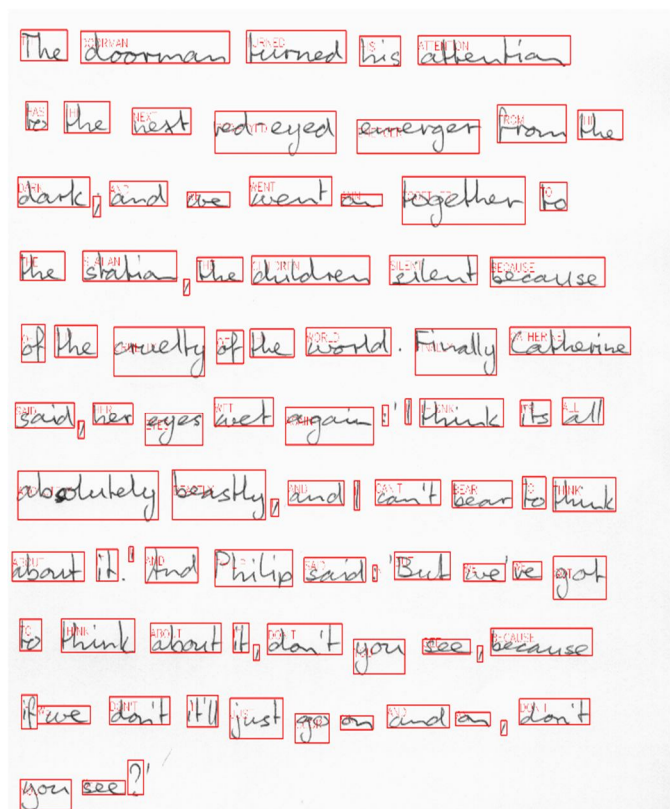 The doorman turned his attention
to the next red-eyed emerger from the
dark, and we went on together to
the station, the children silent because
of the cruelty of the world. Finally Catherine
said, her eyes wet again: 'I think its all
absolutely beastly, and I can't bear to think
about it.' And Philip said: 'But we've got
to think about it, don't you see, because
if we don't it'll just go on and on, don't
you see?'